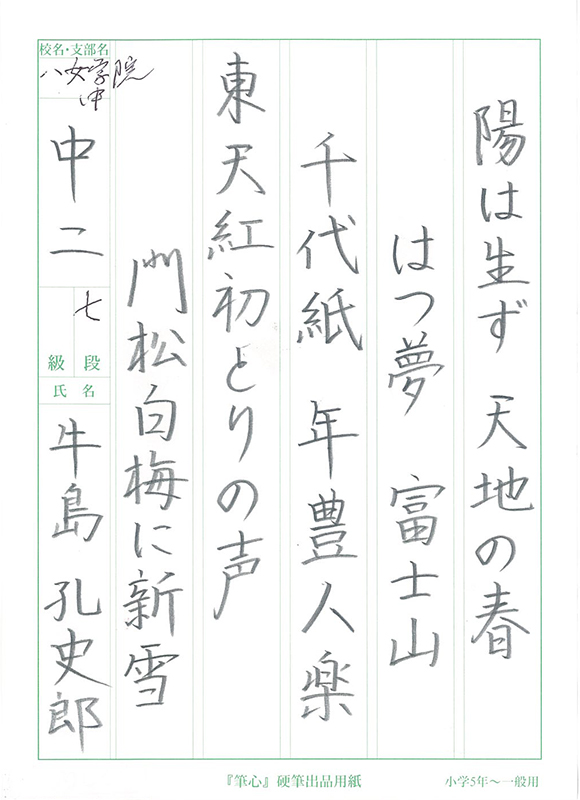 陽は生ず 天地の春
はつ夢 富士山
千代紙 年豊人楽
東天紅初とりの声
門松白梅に新雪
校名・支部名
八女学院中
中二
七
級 段
氏名
牛島 孔史郎
『筆心』硬筆出品用紙
小学5年～一般用